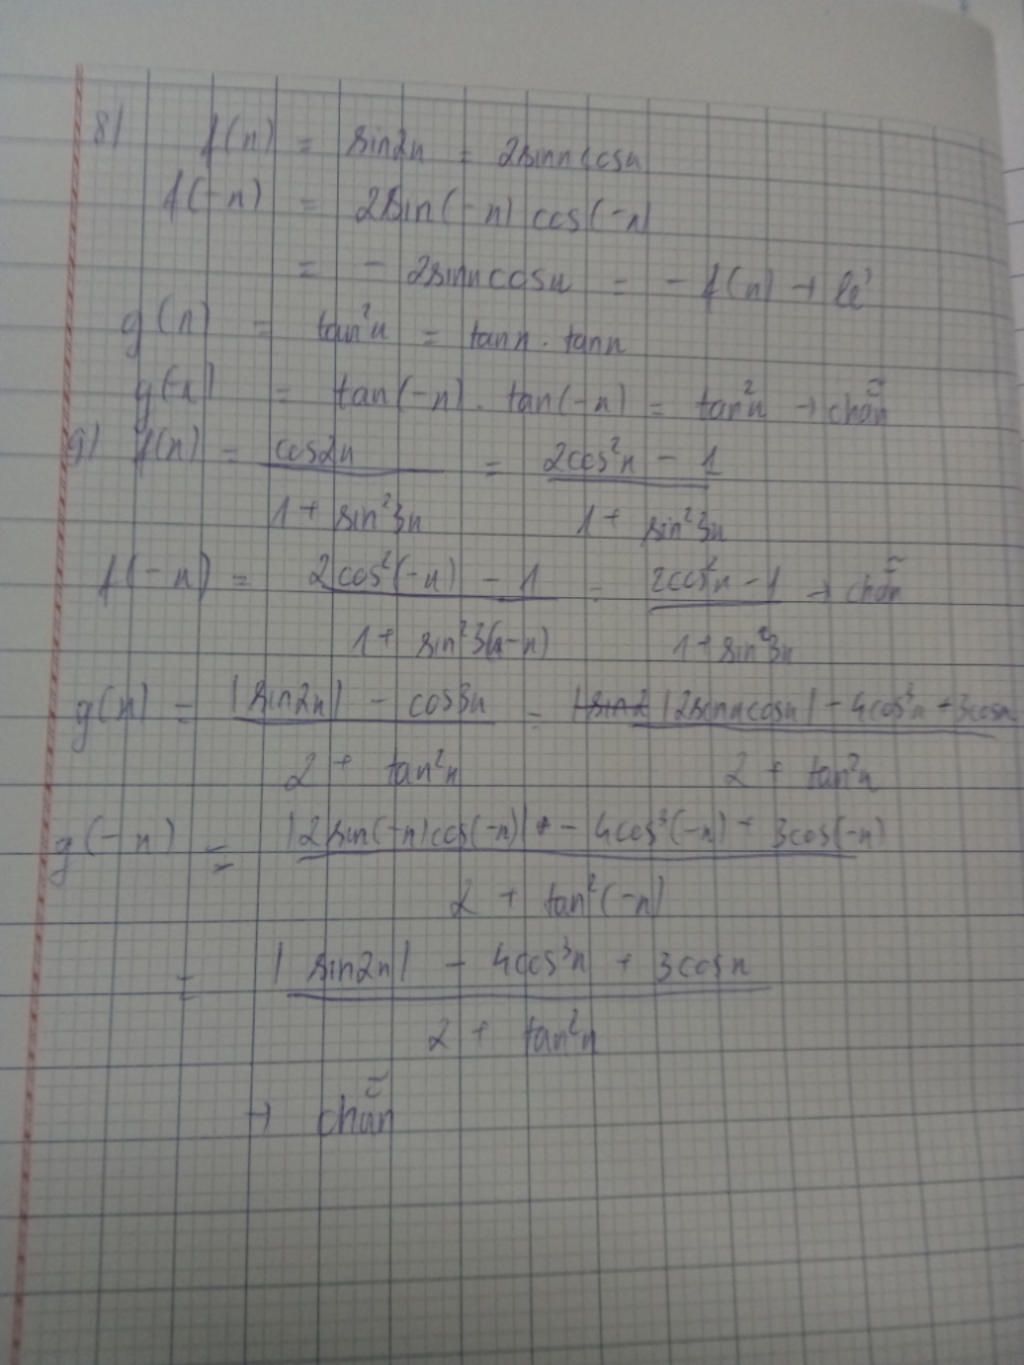 8) f(x) = sin2x = 2sinxcosx
f(-x) = 2sin(-x) cos(-x)
= - 2sinxcosx = - f(x) → lẻ
g(x) = tan²x = tanx . tanx
g(-x) = tan(-x) . tan(-x) = tan²x → chẵn
9) f(x) = cos2x / 1 + sin²3x = 2cos²x - 1 / 1 + sin²3x
f(-x) = 2cos²(-x) - 1 / 1 + sin²3(-x) = 2cos²x - 1 / 1 + sin²3x → chẵn
g(x) = |sin2x| - cos3x / 2 + tan²x = |2sinxcosx| - 4cos³x + 3cosx / 2 + tan²x
g(-x) = |2sin(-x)cos(-x)| - 4cos³(-x) + 3cos(-x) / 2 + tan²(-x)
= |sin2x| - 4cos³x + 3cosx / 2 + tan²x
→ chẵn